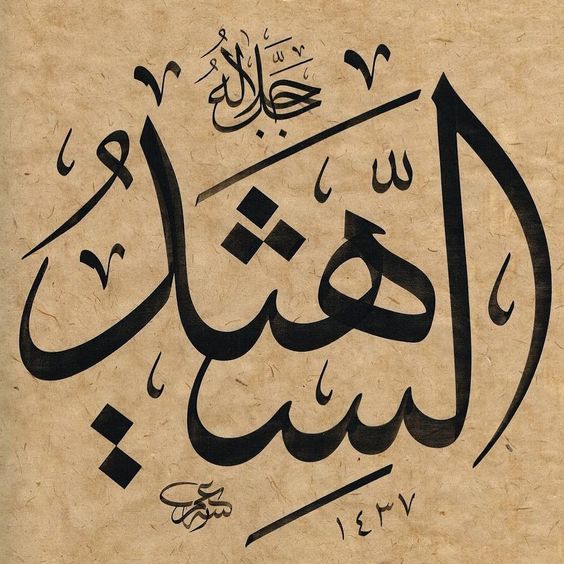 جَلَّ جَلَالُهُ
الشَّهِيدُ
١٤٣٧